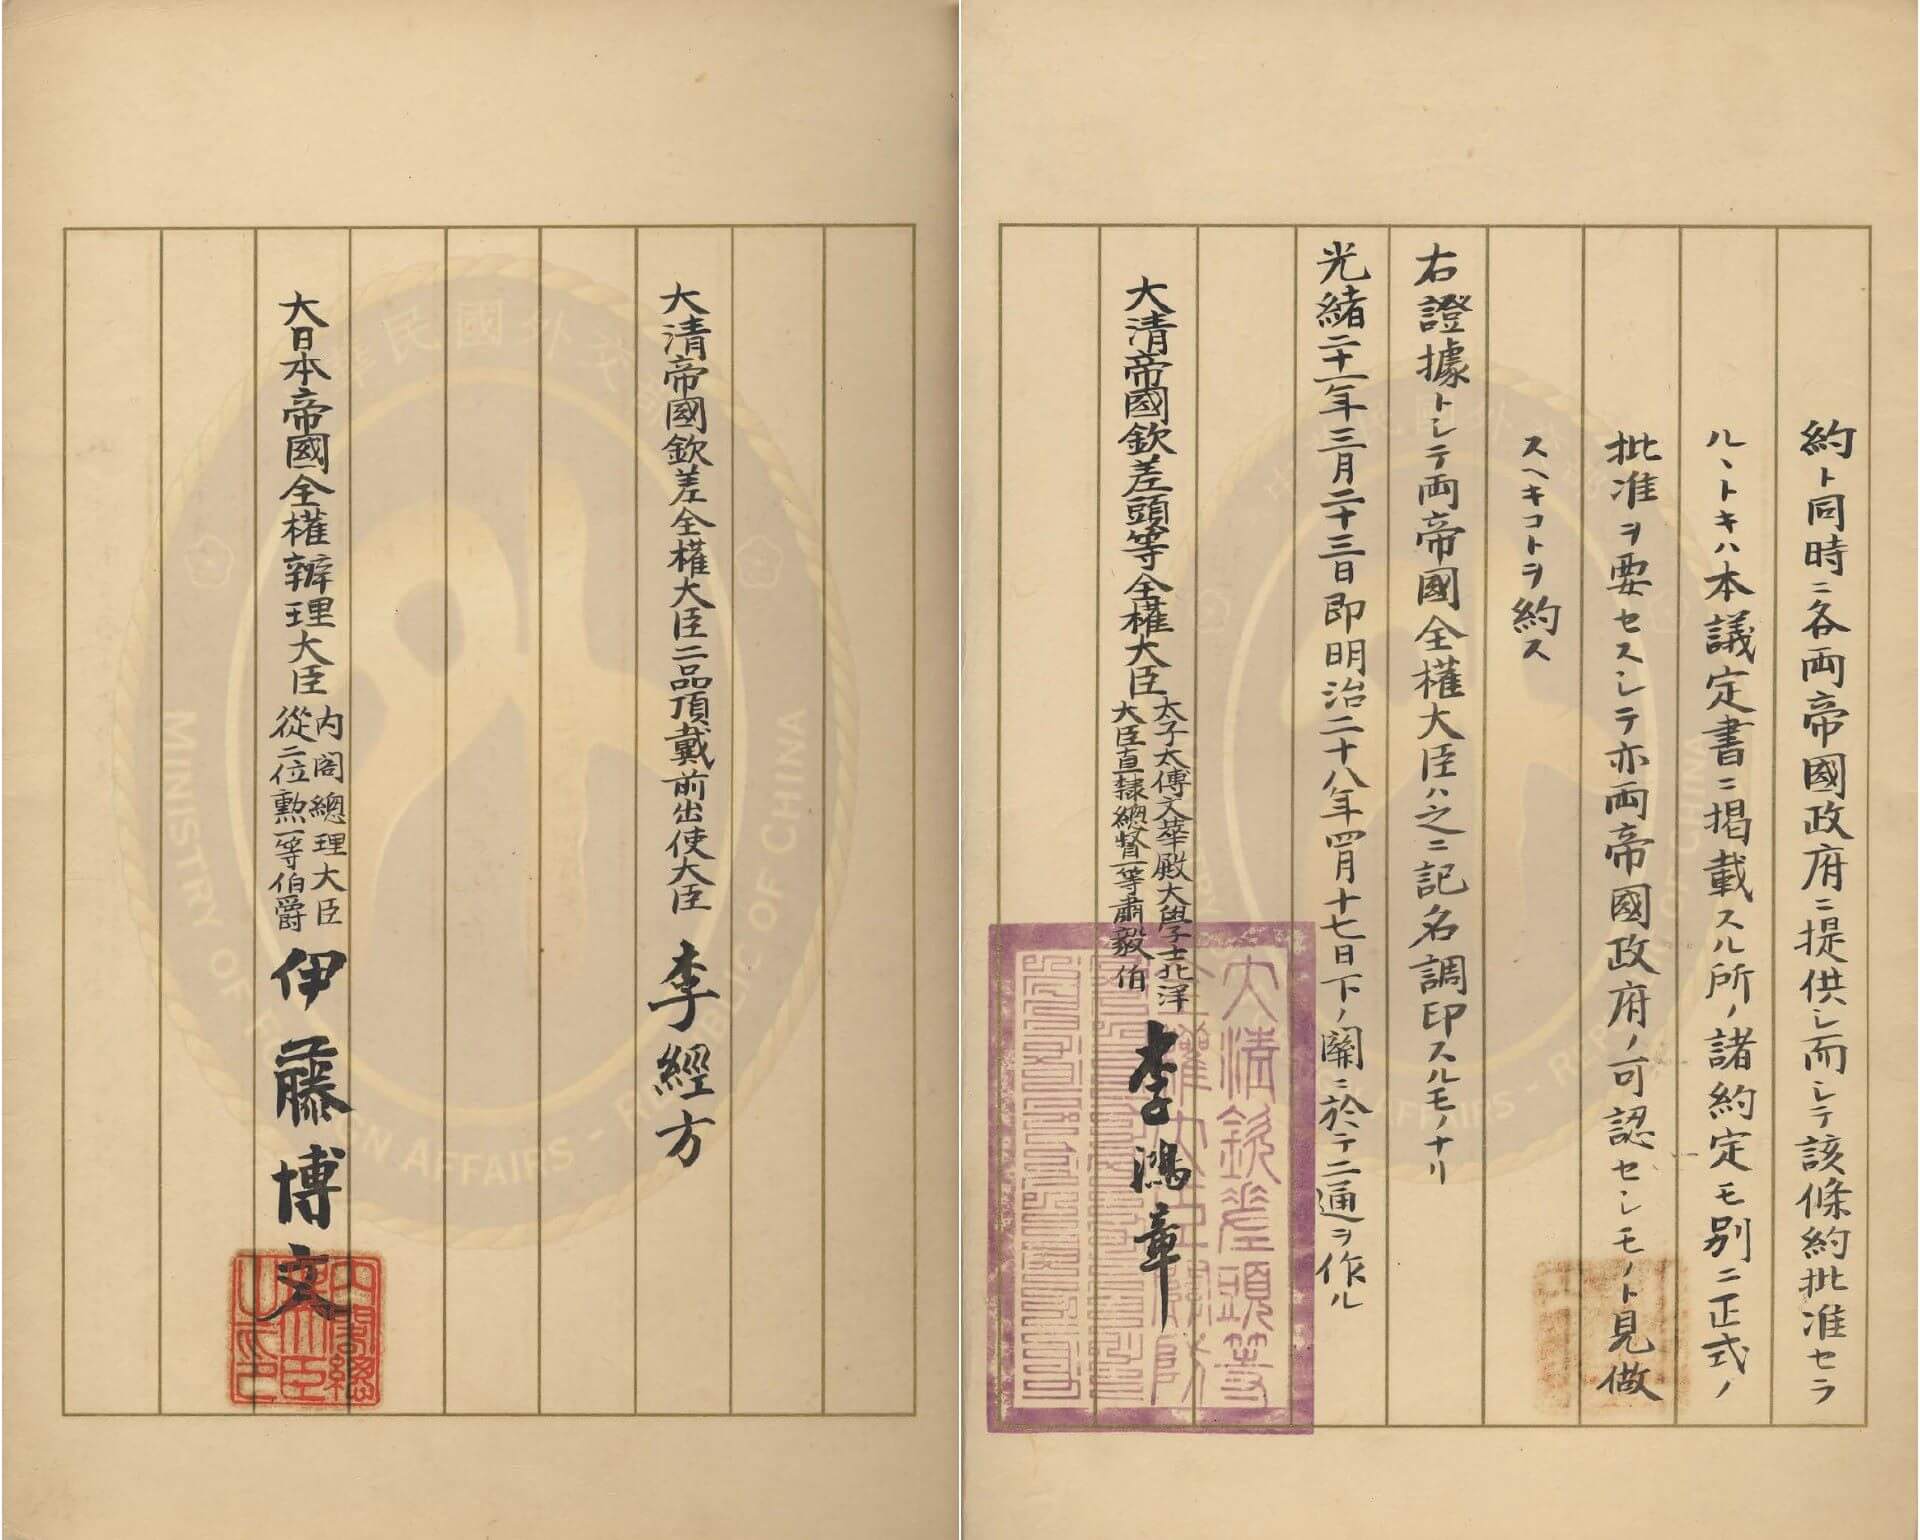 約ト同時ニ各両帝國政府ニ提供シ而シテ該條約批准セラ
ルヽトキハ本議定書ニ掲載スル所ノ諸約定モ別ニ正式ノ
批准ヲ要セスシテ亦両帝國政府ノ可認セシモノト見做
スヘキコトヲ約ス
右證據トシテ両帝國全權大臣ハ之ニ記名調印スルモノナリ
光緒二十一年三月二十三日即明治二十八年四月十七日下ノ關ニ於テ二通ヲ作ル
大清帝國欽差頭等全權大臣
太子太傅文華殿大學士北洋
大臣直隷總督一等肅毅伯
李鴻章
大清欽差頭等
全權大臣關防
大清帝國欽差全權大臣二品頂戴前出使大臣 李經方
大日本帝國全權辨理大臣
内閣總理大臣
從二位勲一等伯爵
伊藤博文
内閣總
理大臣
之印
中華民國外交部
MINISTRY OF FOREIGN AFFAIRS - REPUBLIC OF CHINA